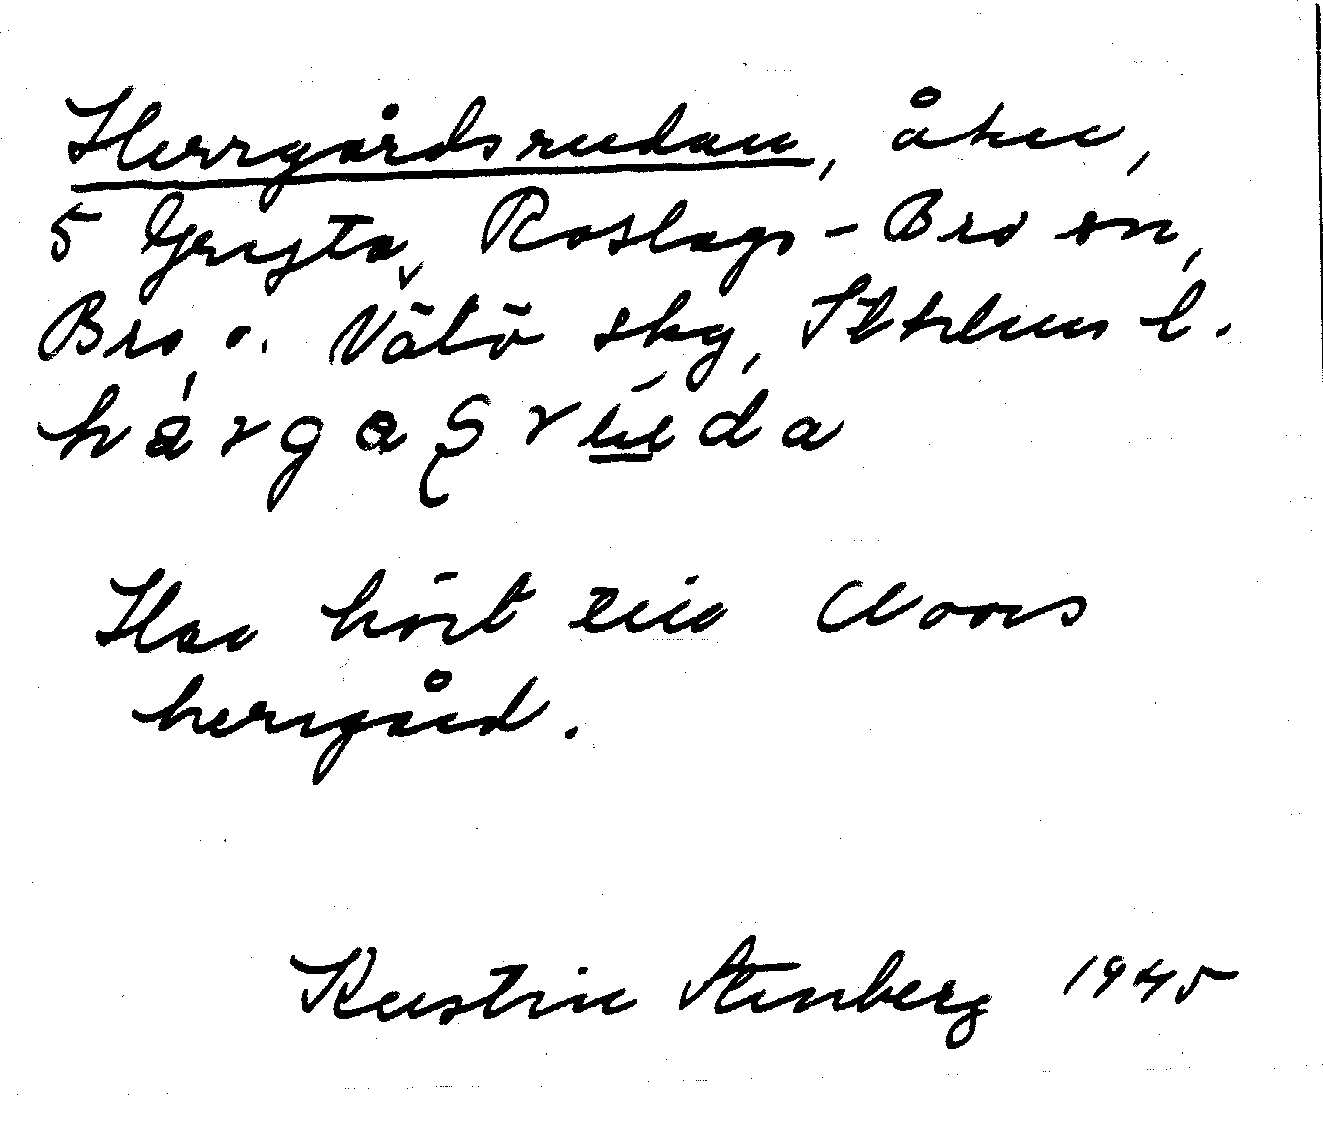 Herrgårdsrudan, åker,
5 Grysta, Roslags-Bro sn,
Bro o. Vätö skg, Sthlms l.
hàrgaʂrʉda
Har hört till Cloovs
herrgård.
Kerstin Stenberg 1945